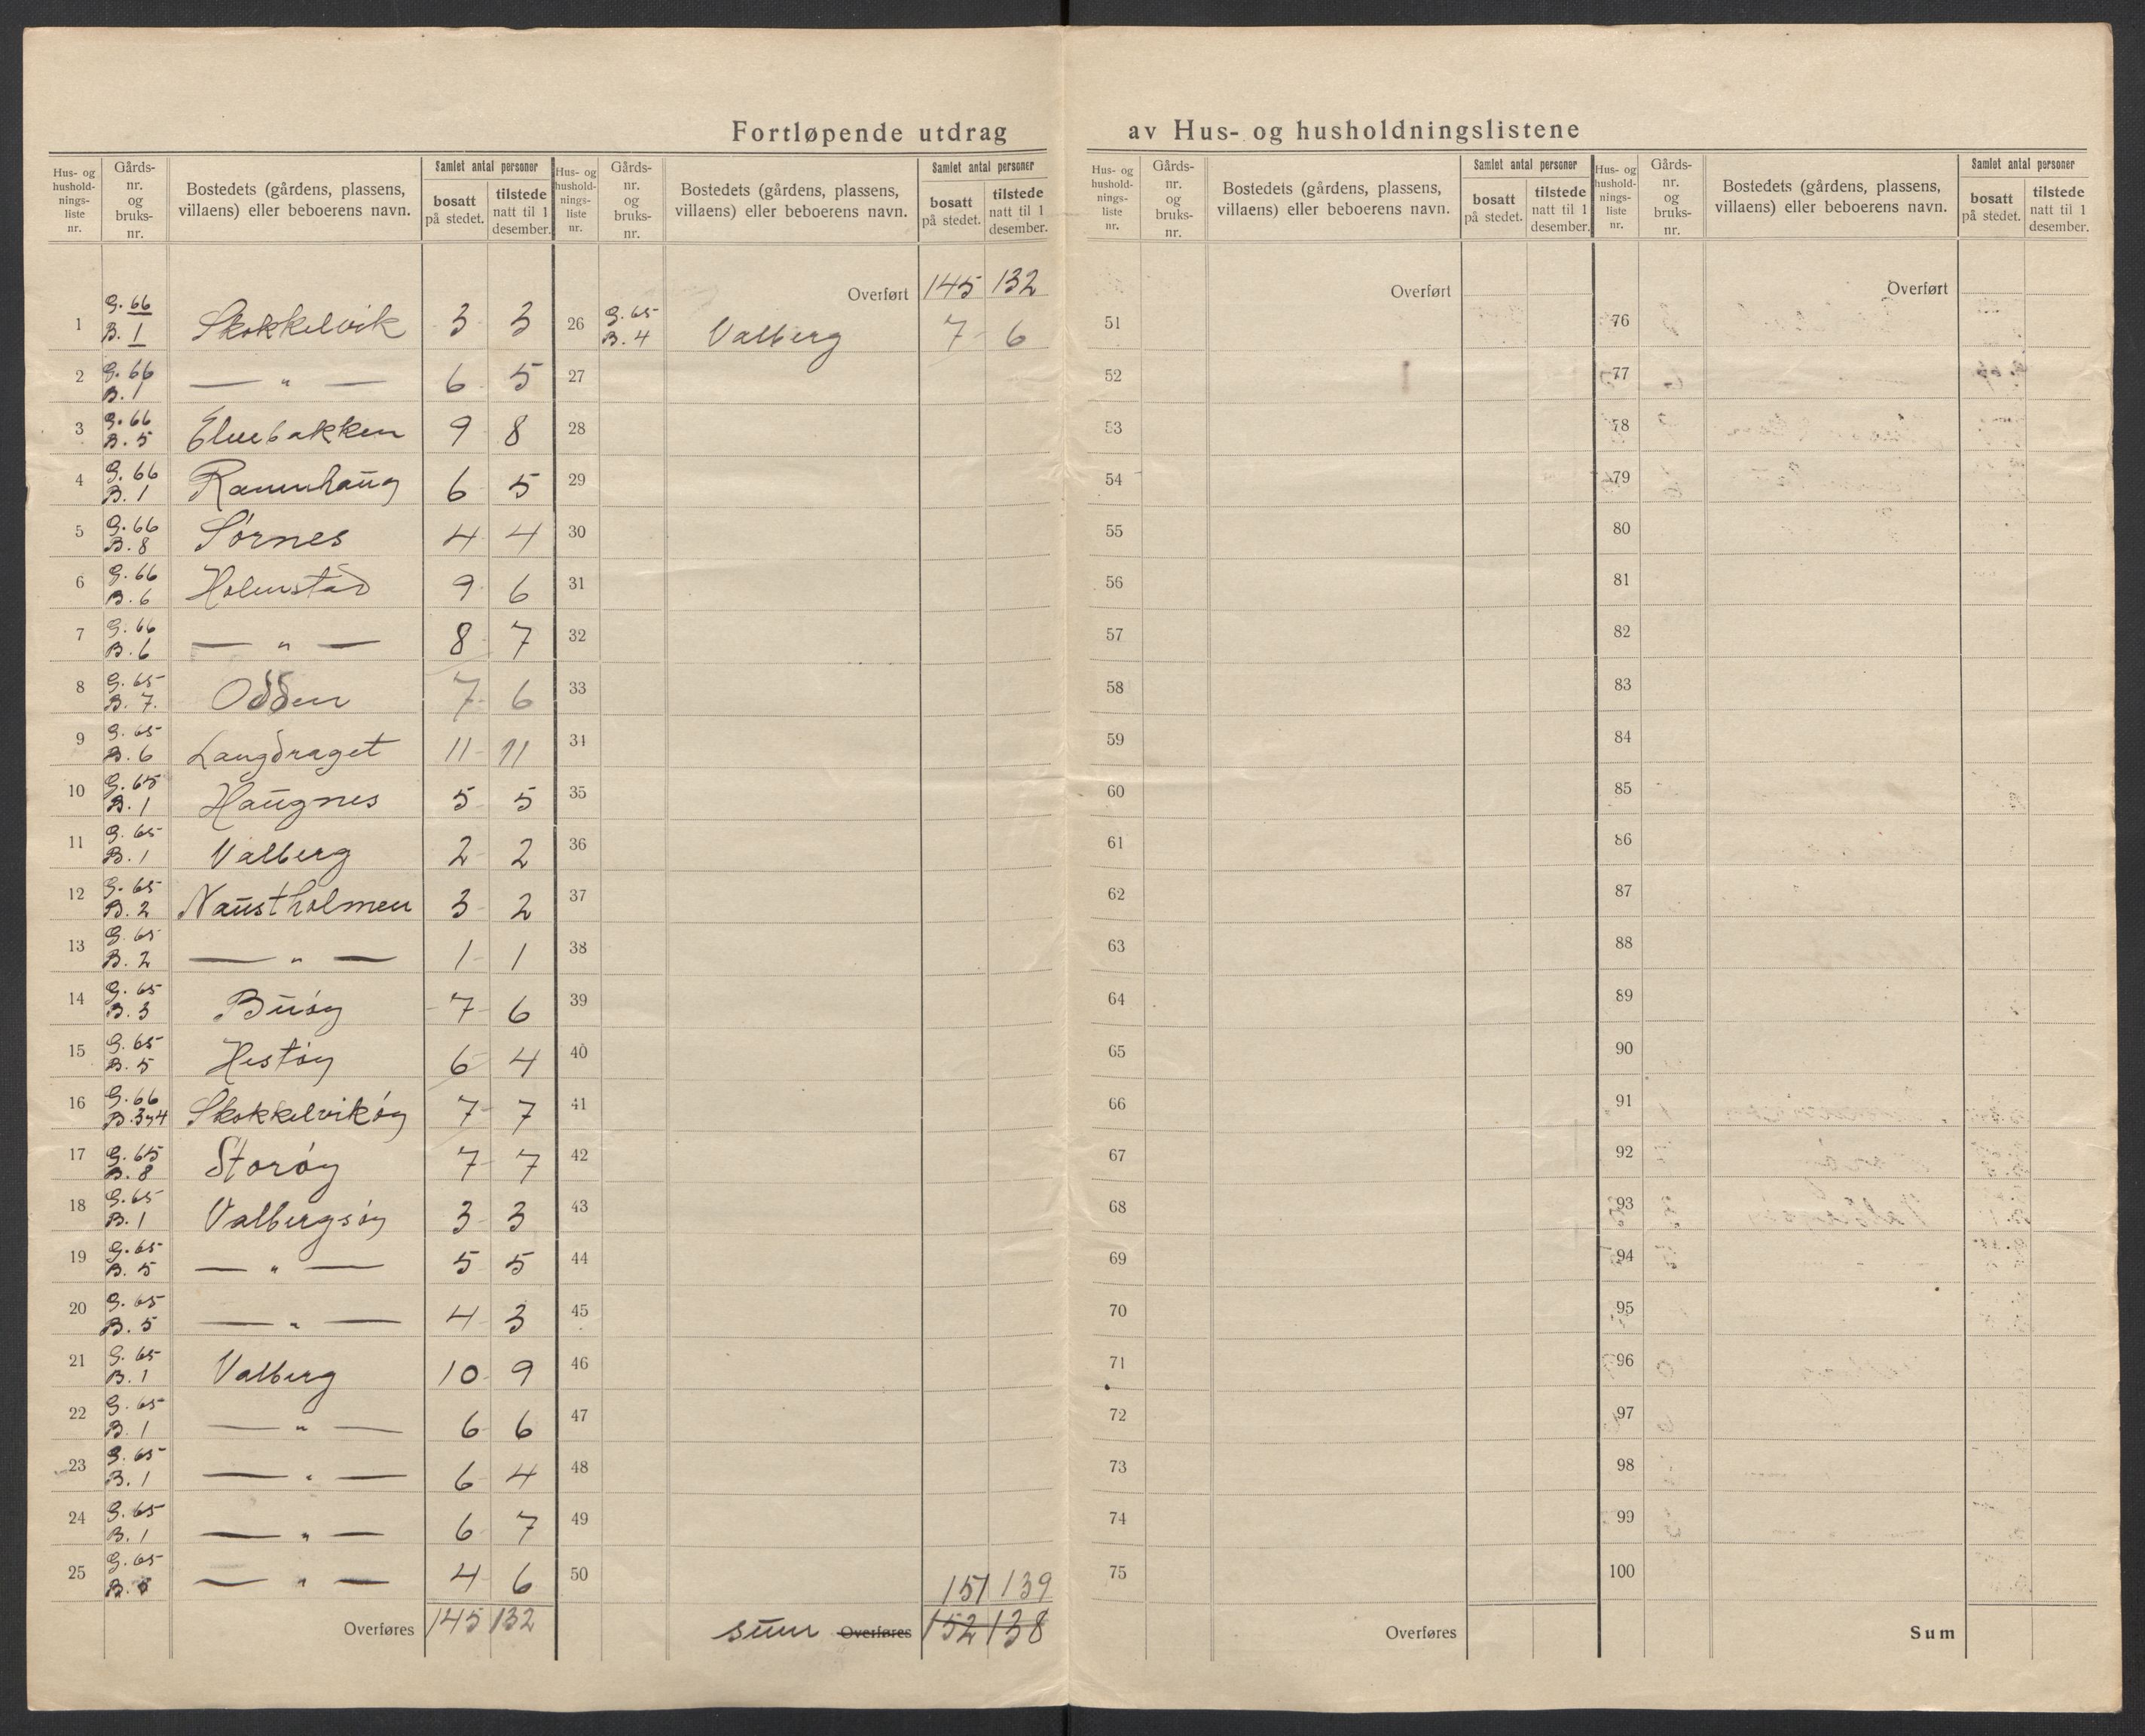 Fortløpende utdrag av Hus- og husholdningslistene
Hus- og husholdningsliste nr. | Gårds-nr. og bruks-nr. | Bostedets (gårdens, plassens, villaens) eller beboerens navn. | Samlet antal personer | bosatt på stedet. | tilstede natt til 1 desember.
1 G. 66 B. 1 Skokkelvik 3 3
2 G. 66 B. 1 — " — 6 5
3 G. 66 B. 5 Elvebakken 9 8
4 G. 66 B. 1 Rannhaug 6 5
5 G. 66 B. 8 Sørnes 4 4
6 G. 66 B. 6 Holmstad 9 6
7 G. 66 B. 6 — " — 8 7
8 G. 65 B. 7. Odden 7 6
9 G. 65 B. 6 Langdraget 11 11
10 G. 65 B. 1 Haugnes 5 5
11 G. 65 B. 1 Valberg 2 2
12 G. 65 B. 2 Naustholmen 3 2
13 G. 65 B. 2 — " — 1 1
14 G. 65 B. 3 Buøy 7 6
15 G. 65 B. 5 Hestøy 6 4
16 G. 66 B. 3 4 Skokkelvikøy 7 7
17 G. 65 B. 8 Storøy 7 7
18 G. 65 B. 1 Valbergsøy 3 3
19 G. 65 B. 5 — " — 5 5
20 G. 65 B. 5 — " — 4 3
21 G. 65 B. 1 Valberg 10 9
22 G. 65 B. 1 — " — 6 6
23 G. 65 B. 1 — " — 6 4
24 G. 65 B. 1 — " — 6 7
25 G. 65 B. — " — 4 6
Overføres 145 132
Hus- og husholdningsliste nr. | Gårds-nr. og bruks-nr. | Bostedets (gårdens, plassens, villaens) eller beboerens navn. | Samlet antal personer | bosatt på stedet. | tilstede natt til 1 desember.
Overført 145 132
26 G. 65 B. 4 Valberg 7 6
27
28
29
30
31
32
33
34
35
36
37
38
39
40
41
42
43
44
45
46
47
48
49
50
151 139
sum Overføres 152 138
Hus- og husholdningsliste nr. | Gårds-nr. og bruks-nr. | Bostedets (gårdens, plassens, villaens) eller beboerens navn. | Samlet antal personer | bosatt på stedet. | tilstede natt til 1 desember.
Overført
51
52
53
54
55
56
57
58
59
60
61
62
63
64
65
66
67
68
69
70
71
72
73
74
75
Overføres
Hus- og husholdningsliste nr. | Gårds-nr. og bruks-nr. | Bostedets (gårdens, plassens, villaens) eller beboerens navn. | Samlet antal personer | bosatt på stedet. | tilstede natt til 1 desember.
Overført
76
77
78
79
80
81
82
83
84
85
86
87
88
89
90
91
92
93
94
95
96
97
98
99
100
Sum